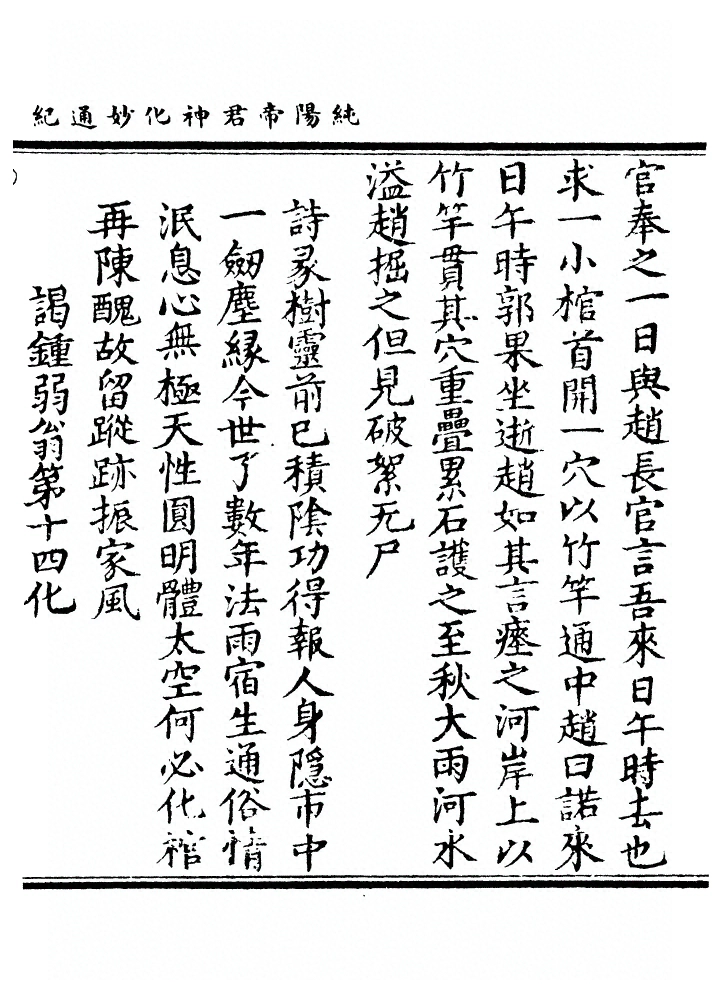 純陽帝君神化妙通紀
官奉之一日與趙長官言吾來日午時去也
求一小棺首開一穴以竹竿通中趙曰諾來
日午時郭果坐逝趙如其言瘞之河岸上以
竹竿貫其穴重疊累石護之至秋大雨河水
溢趙掘之但見破絮无尸
詩彖樹靈前已積陰功得報人身隱市中
一劒塵緣今世了數年法雨宿生通俗情
泯息心無極天性圓明體太空何必化棺
再陳醜故留蹤跡振家風
謁鍾弱翁第十四化